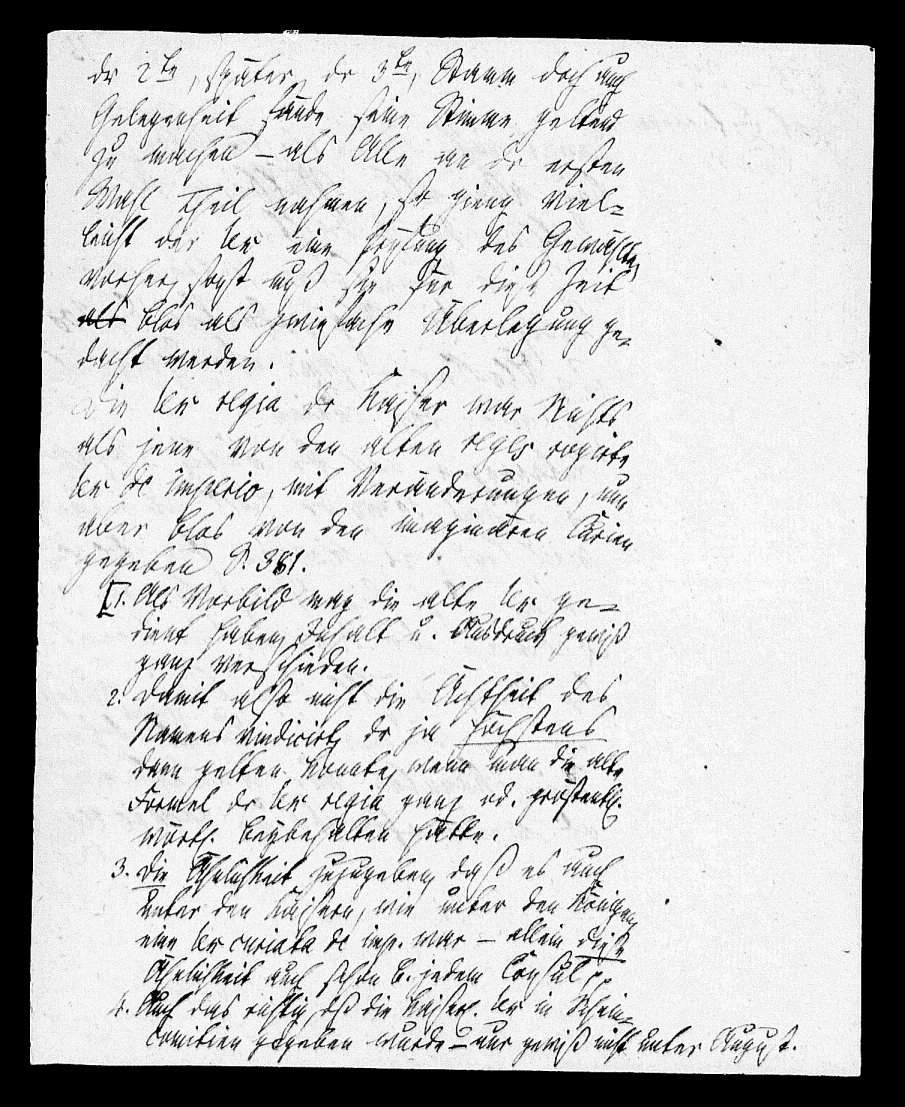 der 2te, später der 3te, Stamm doch auch
Gelegenheit fände seine Stimme geltend
zu machen – als Alle an der ersten
Wahl Theil nahmen, so gieng viel-
leicht der lex eine Prüfung des Gewählten
vorher, sonst muß sie für diese Zeit
als blos als zwiefache Überlegung ge-
dacht werden.
Die lex regia der Kaiser war Nichts
als jene von den alten reges rogirte
lex de imperio, mit Veränderungen, nun
aber blos von den imaginären Curien
gegeben P. 381.
[1. Als Vorbild mag die alte lex ge-
dient haben, Inhalt u. Ausdruck gewiß
ganz verschieden.
2. Damit also nicht die Ächtheit des
Namens vindicirt, der ja höchstens
dann gelten könnte, wenn man die alte
Formel der lex regia ganz od. größtentheils
wörtl. beybehalten hätte.
3. Die Ähnlichkeit zuzugeben, daß es auch
unter den Kaisern, wie unter den Königen,
eine lex curiata de imp. war – allein diese
Ähnlichkeit auch schon b. jedem Consul
4. Auch das richtig, daß die Kaiserl. lex in Schein-
comitien gegeben wurde – nur gewiß nicht unter August.